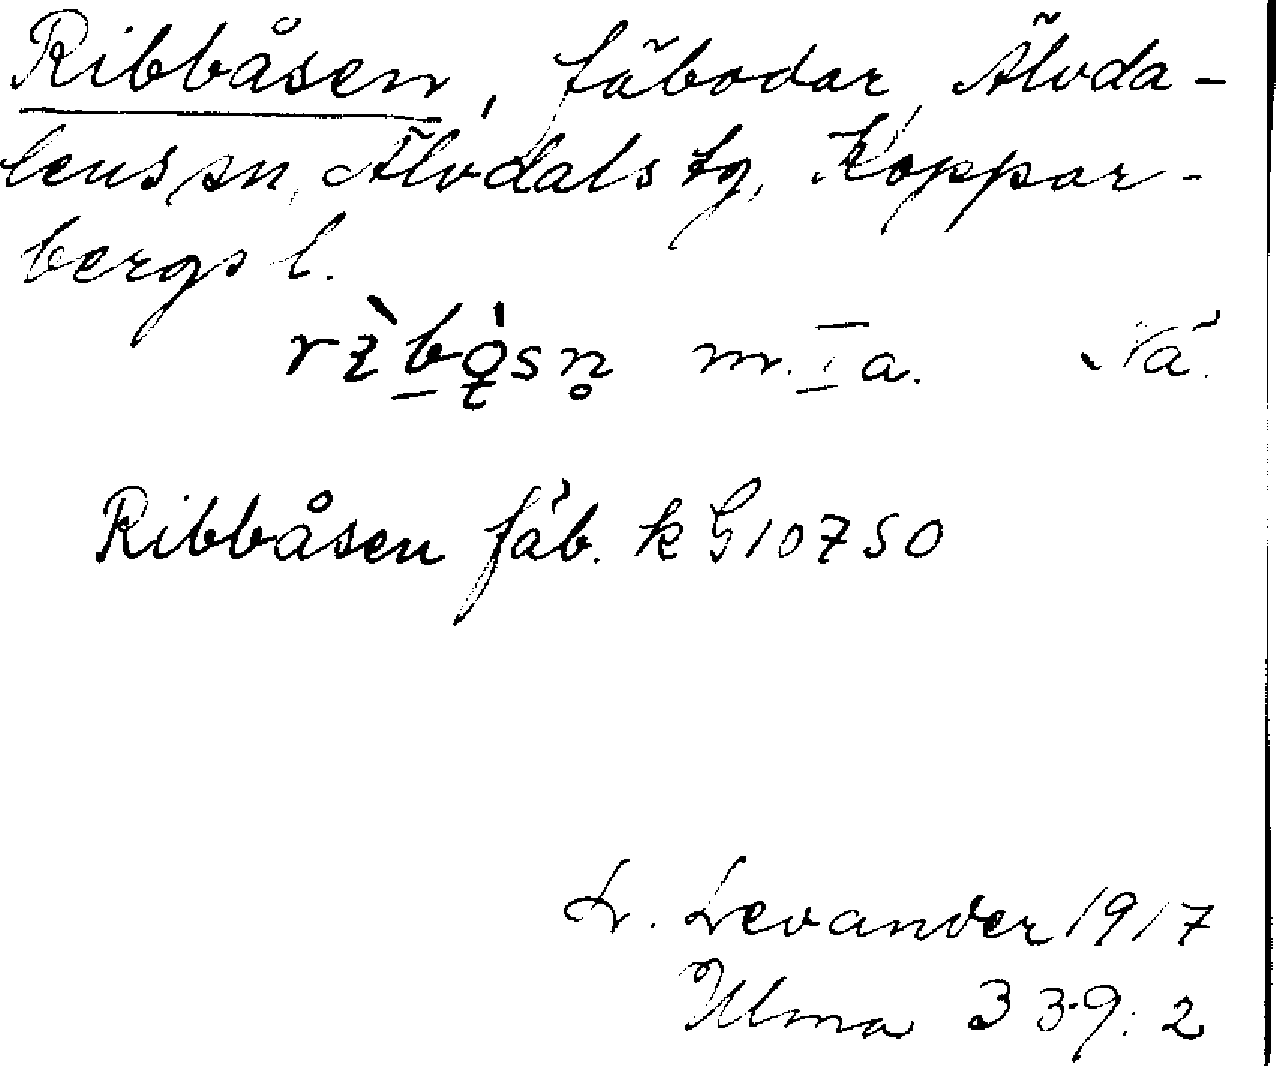 Ribbåsen, fäbodar, Älvda-
lens sn, Älvdals tg, Koppar-
bergs l.
m. I a. Nä.
Ribbåsen fäb. k G10750
L. Levander 1917
Ulma 339:2